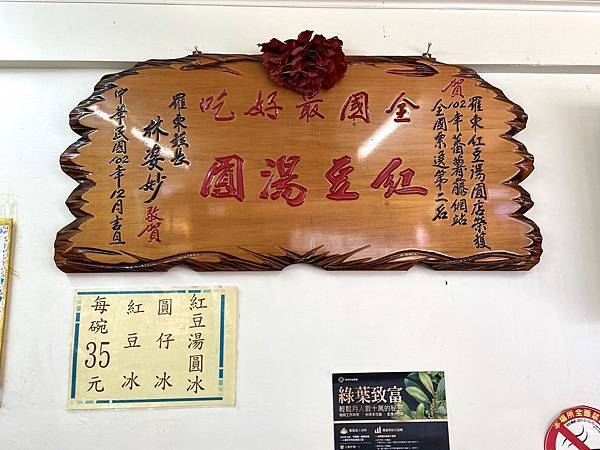 賀
羅東紅豆湯圓店榮獲
102年蕃薯藤網站
全國票選第二名
全國最好吃
紅豆湯圓
羅東鎮長
林姿妙 敬賀
中華民國102年12月吉旦
紅豆湯圓冰
圓仔冰
紅豆冰
每碗35元
綠葉致富
輕鬆月入數十萬的秘